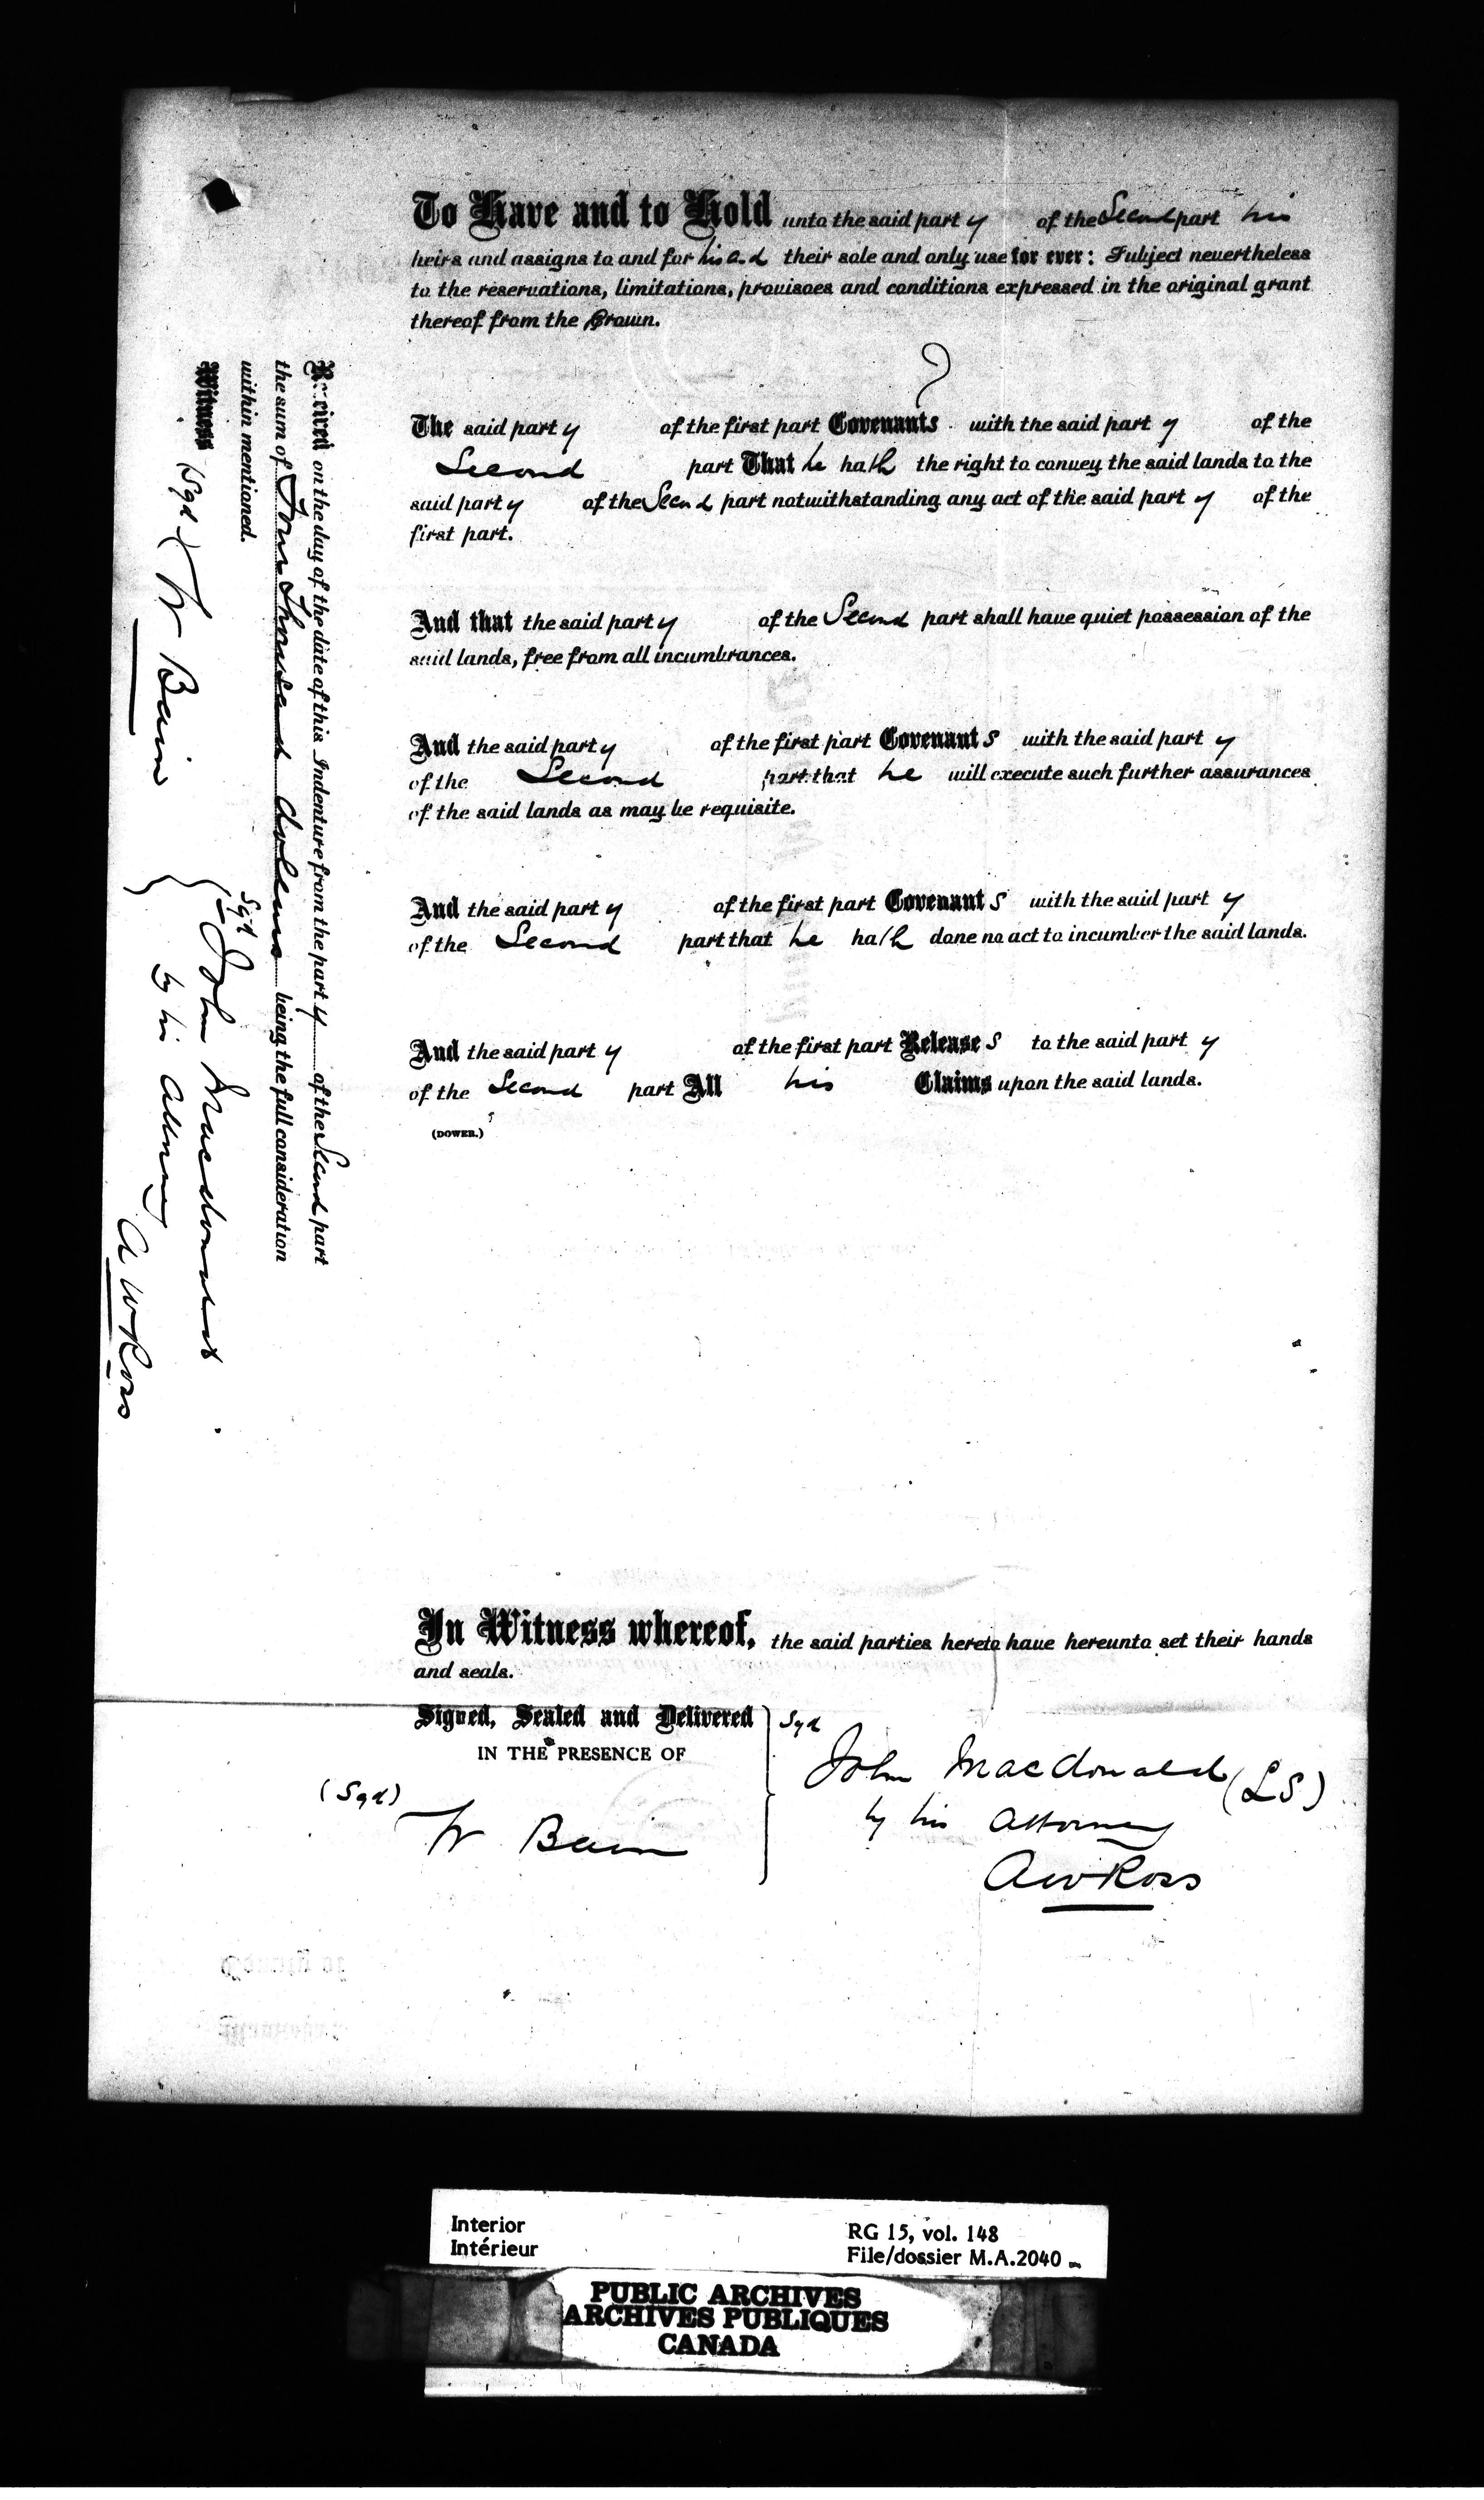 To Have and to Hold unto the said party of the Second part his
heirs and assigns to and for his and their sole and only use for ever: Subject nevertheless
to the reservations, limitations, provisoes and conditions expressed in the original grant
thereof from the Crown.
The said party of the first part Covenants with the said party of the
Second part That he hath the right to convey the said lands to the
said party of the Second part notwithstanding any act of the said party of the
first part.
And that the said party of the Second part shall have quiet possession of the
said lands, free from all incumbrances.
And the said party of the first part Covenants with the said party
of the Second part that he will execute such further assurances
of the said lands as may be requisite.
And the said party of the first part Covenants with the said party
of the Second part that he hath done no act to incumber the said lands.
And the said party of the first part Releases to the said party
of the Second part All his Claims upon the said lands.
(DOWER.)
In Witness whereof, the said parties hereto have hereunto set their hands
and seals.
Signed, Sealed and Delivered
IN THE PRESENCE OF
(Sgd)
W Bain
Sgd
John Macdonald (LS)
by his Attorney
A W Ross
Received on the day of the date of this Indenture from the party of the Second part
the sum of Thousand dollars being the full consideration
within mentioned.
Witness
(Sgd) W Bain
Sgd
John Macdonald
by his Attorney
A W Ross
Interior
Intérieur
RG 15, vol. 148
File/dossier M.A.2040
PUBLIC ARCHIVES
ARCHIVES PUBLIQUES
CANADA